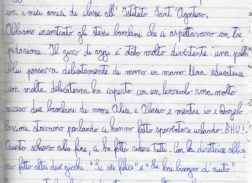 con i miei amici di classe all'Istituto Sant'Agostino.
Abbiamo incontrato gli stessi bambini che ci aspettavano con tre
Il gioco di oggi è stato molto divertente: una palla
blu passava delicatamente di mano in mano. Una educatrice
con molta delicatezza ha coperto con un lenzuolo rosa molto
due bambini di nome Alice e Alessio e mentre io e Angelo
stavamo parlando ci hanno fatto spaventare urlando: BHU!!
Questo scherzo, alla fine, ci ha fatto ridere tutti. Con la direttrice abbiamo
fatto altri due giochi: "Se sei felice" e "Se hai bisogno di aiuto".